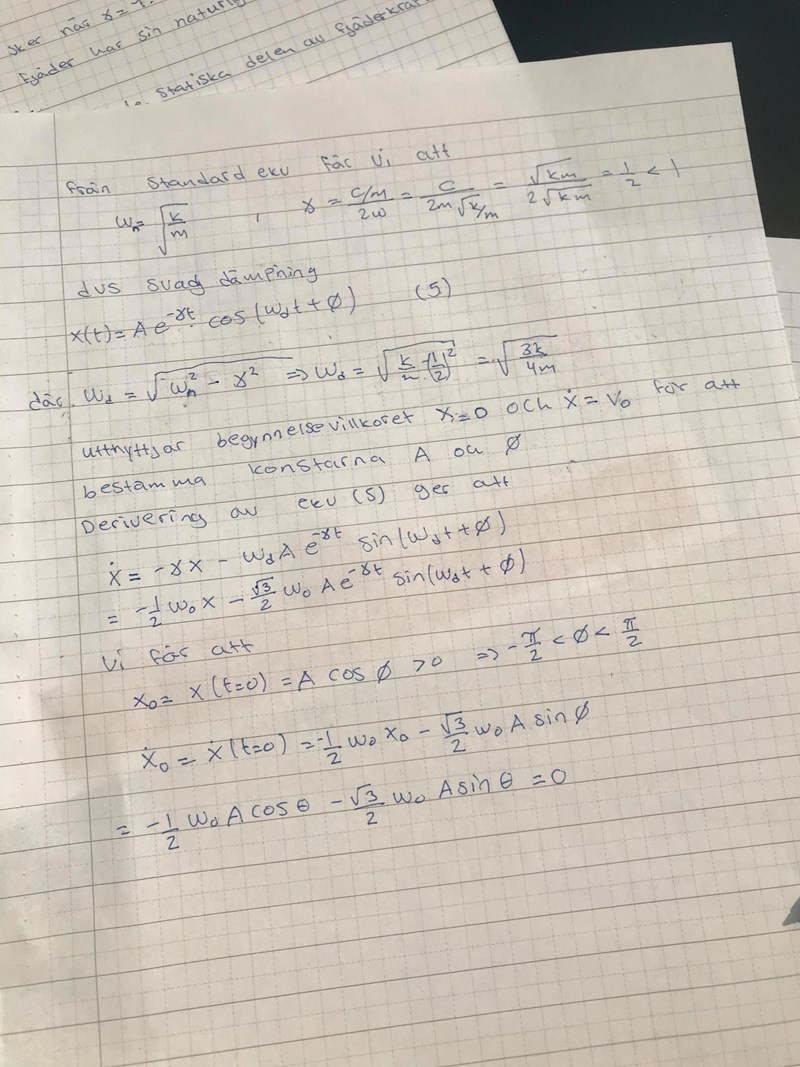 sker när γ = 
fjäder har sin naturlig
statiska delen av fjäderkraf
från standard eku får vi att
ωₙ = √(k/m) , γ = (c/m)/(2ω) = c/(2m√(k/m)) = √(km)/(2√(km)) = 1/2 < 1
dvs svag dämpning
x(t) = A e^(-γt) cos(ω_d t + Ø) (5)
där ω_d = √(ωₙ² - γ²) ⇒ ω_d = √(k/m · (1/2)²) = √(3k/4m)
utthyttjar begynnelsevillkoret x=0 och ẋ = v₀ för att
bestämma konstarna A oci Ø
Derivering av eku (5) ger att
ẋ = -γx - ω_d A e^(-γt) sin(ω_d t + Ø)
= -1/2 ω₀ x - √3/2 ω₀ A e^(-γt) sin(ω_d t + Ø)
Vi får att
x₀ = x(t=0) = A cos Ø > 0 ⇒ -π/2 < Ø < π/2
ẋ₀ = ẋ(t=0) = -1/2 ω₀ x₀ - √3/2 ω₀ A sin Ø
= -1/2 ω₀ A cos θ - √3/2 ω₀ A sin θ = 0